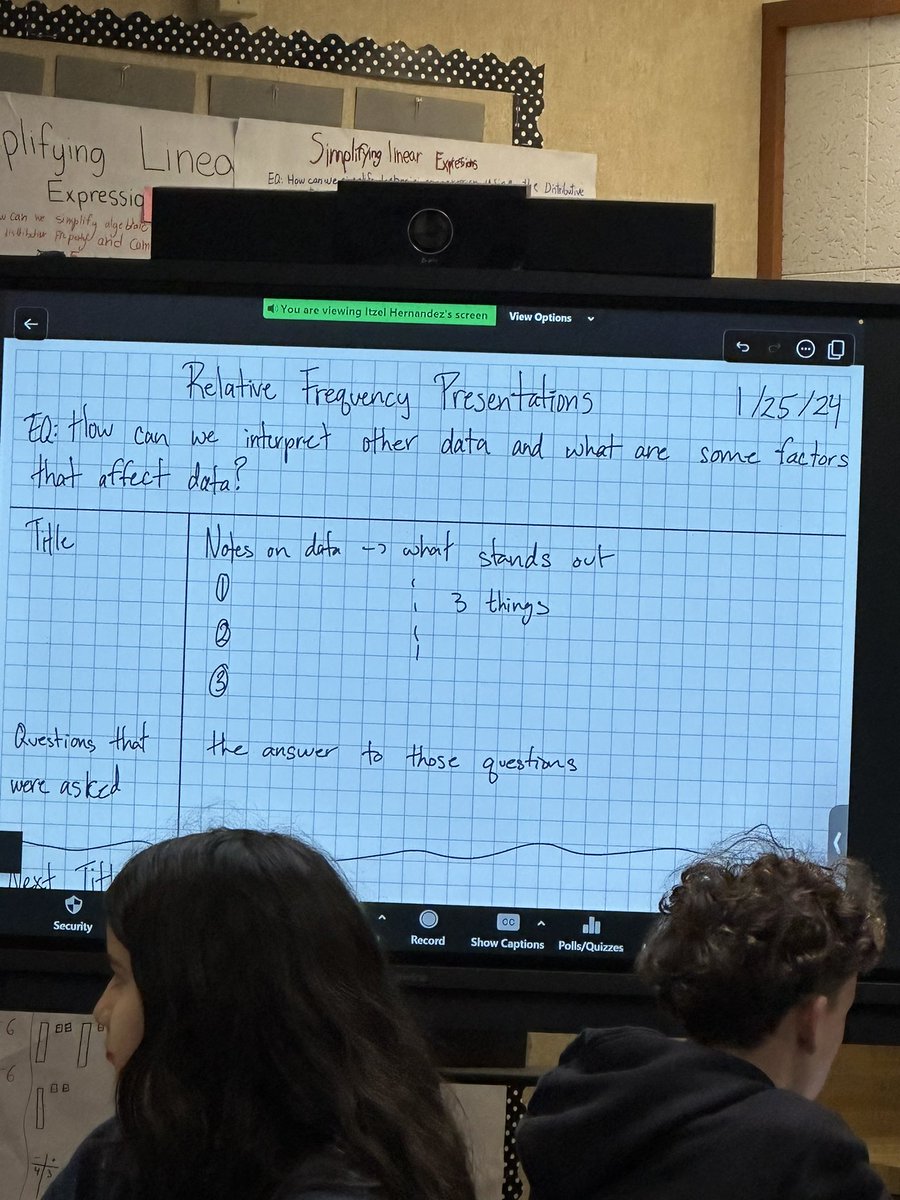 plifying Linea
Expressio
w can we simplify algebraic
distributive Property and Com
Simplifying linear Expressions
EQ: How can we
the Distributive
You are viewing Itzel Hernandez's screen
View Options
Relative Frequency Presentations 1/25/24
EQ: How can we interpret other data and what are some factors
that affect data?
Title
Notes on data -> what stands out
① 3 things
②
③
Questions that
were asked
the answer to those questions
Next Titl
Security
Record
CC
Show Captions
Polls/Quizzes